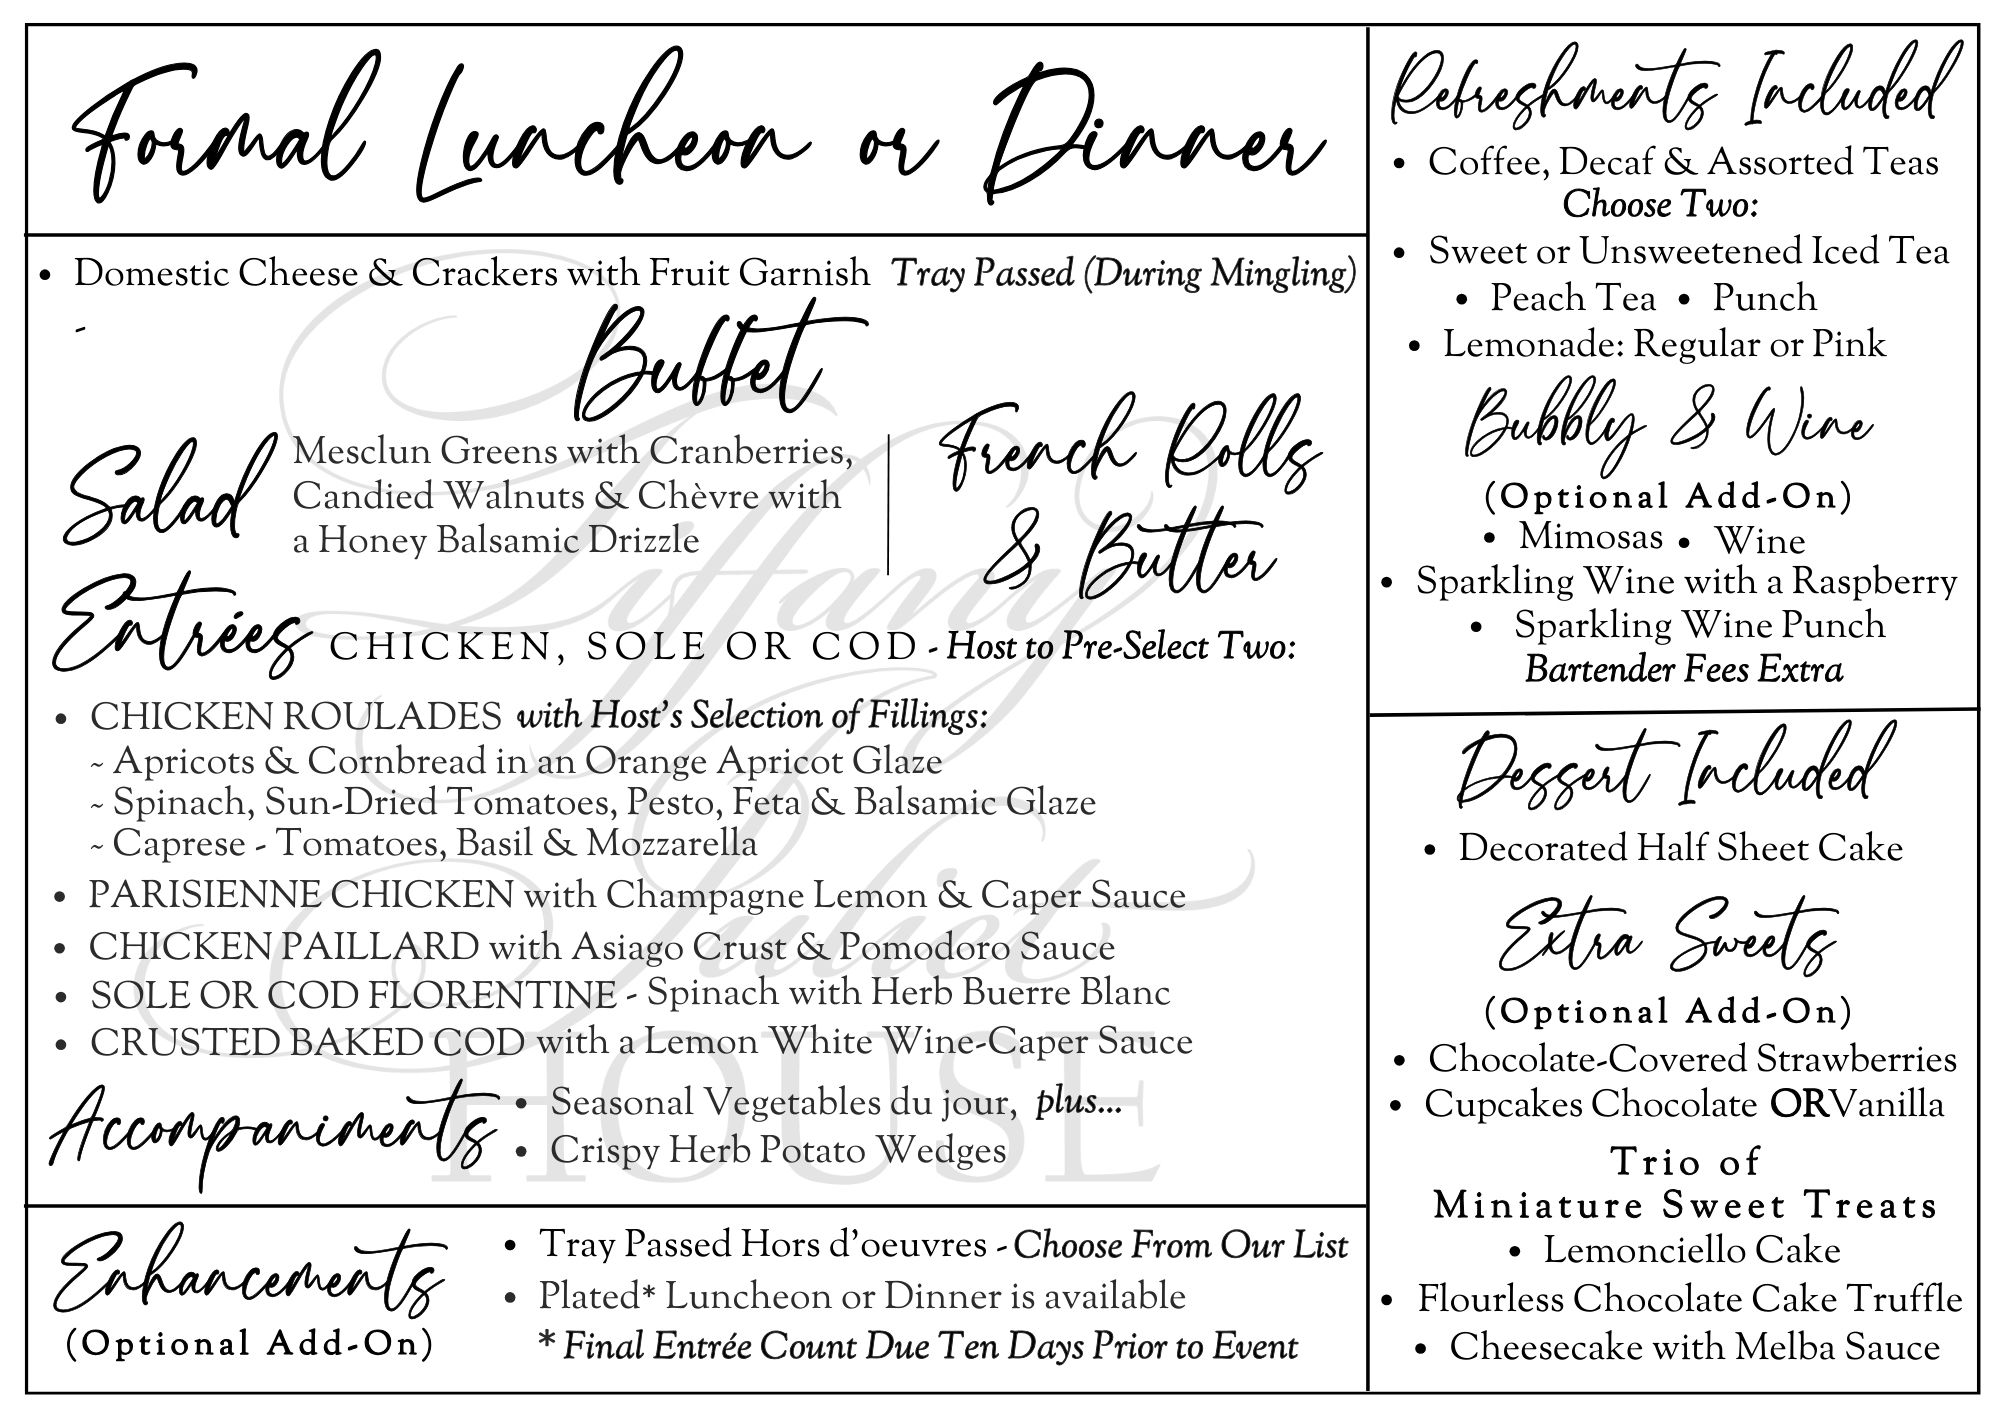 Formal Luncheon or Dinner
• Domestic Cheese & Crackers with Fruit Garnish Tray Passed (During Mingling)
-
Buffet
Salad
Mesclun Greens with Cranberries,
Candied Walnuts & Chèvre with
a Honey Balsamic Drizzle
French Rolls
& Butter
Entrées CHICKEN, SOLE OR COD - Host to Pre-Select Two:
• CHICKEN ROULADES with Host's Selection of Fillings:
~ Apricots & Cornbread in an Orange Apricot Glaze
~ Spinach, Sun-Dried Tomatoes, Pesto, Feta & Balsamic Glaze
~ Caprese - Tomatoes, Basil & Mozzarella
• PARISIENNE CHICKEN with Champagne Lemon & Caper Sauce
• CHICKEN PAILLARD with Asiago Crust & Pomodoro Sauce
• SOLE OR COD FLORENTINE - Spinach with Herb Buerre Blanc
• CRUSTED BAKED COD with a Lemon White Wine-Caper Sauce
Accompaniments
• Seasonal Vegetables du jour, plus...
• Crispy Herb Potato Wedges
Enhancements
(Optional Add-On)
• Tray Passed Hors d'oeuvres - Choose From Our List
• Plated* Luncheon or Dinner is available
* Final Entrée Count Due Ten Days Prior to Event
Refreshments Included
• Coffee, Decaf & Assorted Teas
Choose Two:
• Sweet or Unsweetened Iced Tea
• Peach Tea • Punch
• Lemonade: Regular or Pink
Bubbly & Wine
(Optional Add-On)
• Mimosas • Wine
• Sparkling Wine with a Raspberry
• Sparkling Wine Punch
Bartender Fees Extra
Dessert Included
• Decorated Half Sheet Cake
Extra Sweets
(Optional Add-On)
• Chocolate-Covered Strawberries
• Cupcakes Chocolate ORVanilla
Trio of
Miniature Sweet Treats
• Lemonciello Cake
• Flourless Chocolate Cake Truffle
• Cheesecake with Melba Sauce
Tiffany
Juliet
HOUSE